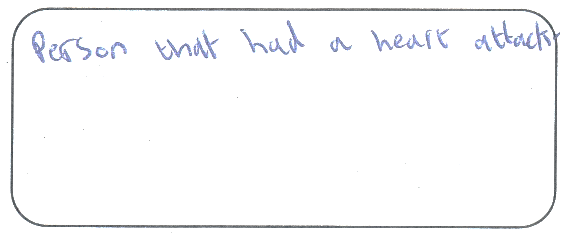 Person that had a heart attack